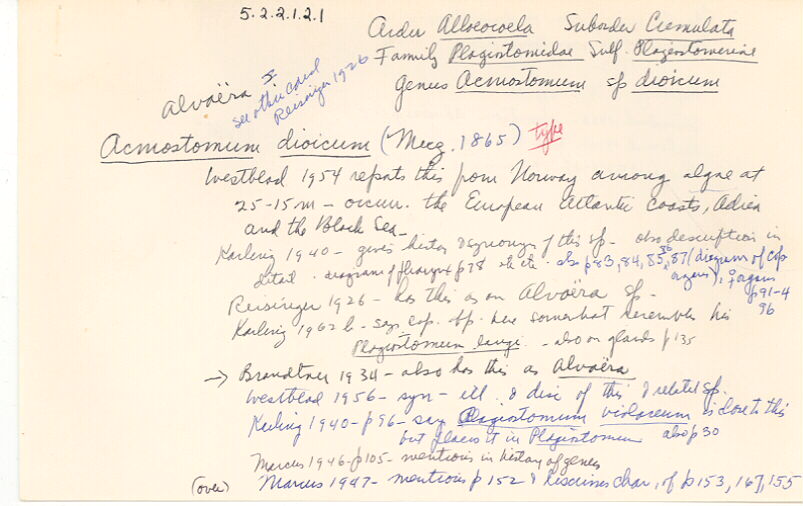 5.2.2.1.2.1
Order Alloeocoela Suborder Cumulata
Family Plagiostomidae Subf. Plagiostominae
Genus Acmostomum sp dioicum
Alvoëra s.
see other card
Reisinger 1926
Acmostomum dioicum (Mecz. 1865) type
Westblad 1954 reports this from Norway among algae at
25-15m - occurr. the European Atlantic coasts, Adria
and the Black Sea -
Karling 1940 - gives history & synonymy of this sp - also description in
detail. diagram of pharynx p78 etc etc. also p83, 84, 85, 86, 87 (diagram of cop
organs), ♀ organs
p91-4
96
Reisinger 1926 - has this as an Alvoëra sp.
Karling 1962 b - says cop. ap. here somewhat resembles his
Plagiostomum langi - also on glands p135
→ Brandtner 1934 - also has this as Alvoëra
Westblad 1956 - syn - ill & disc of this & related sp.
Karling 1940 - p96 - says Plagiostomum violaceum is close to this
but places it in Plagiostomum also p30
Marcus 1946 - p105 - mentions in history of genus
(over) Marcus 1947 - mentions p152 & discusses char. of p153, 167, 155